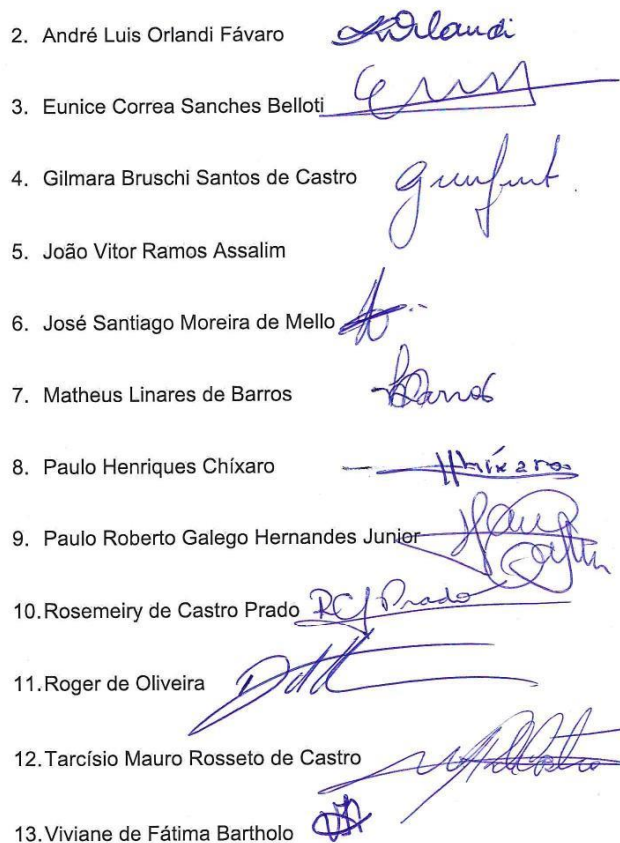 2. André Luis Orlandi Fávaro Orlandi
3. Eunice Correa Sanches Belloti
4. Gilmara Bruschi Santos de Castro
5. João Vitor Ramos Assalim
6. José Santiago Moreira de Mello
7. Matheus Linares de Barros Barros
8. Paulo Henriques Chíxaro
9. Paulo Roberto Galego Hernandes Junior
10. Rosemeiry de Castro Prado RCJ Prado
11. Roger de Oliveira
12. Tarcísio Mauro Rosseto de Castro
13. Viviane de Fátima Bartholo